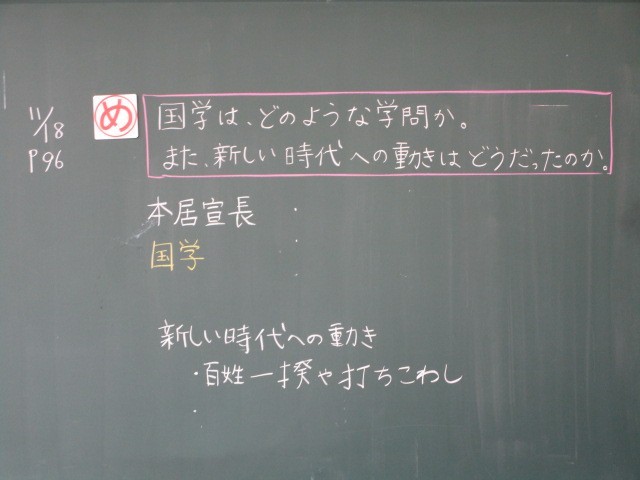 11/18
P96
め
国学は、どのような学問か。
また、新しい時代への動きはどうだったのか。
本居宣長 ・
・
国学 ・
新しい時代への動き
・百姓一揆や打ちこわし
・